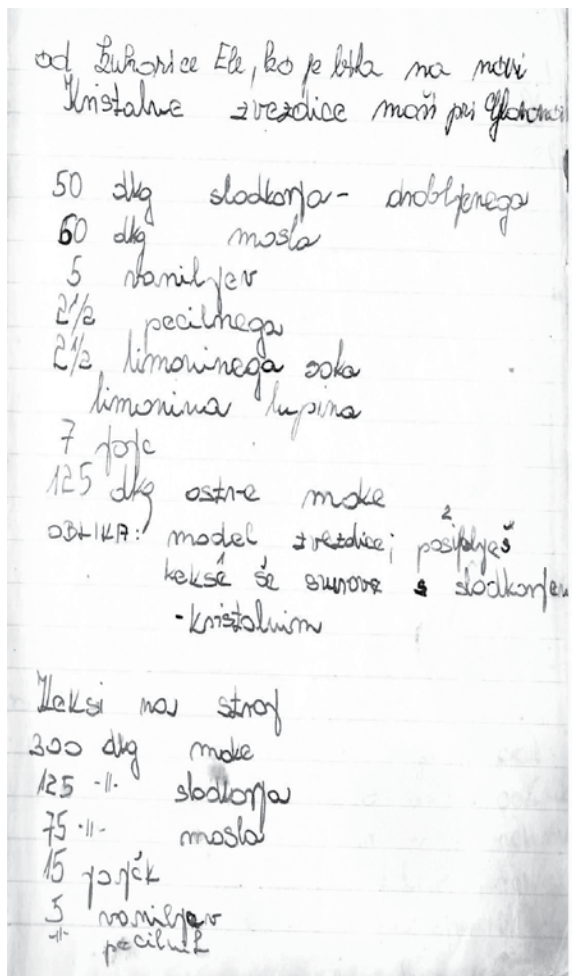 od kuharice Ele, ko je bila na novi
Kristalne zvezdice maši pri
50 dkg sladkorja - drobljenega
60 dkg masla
5 vaniljev
2 1/2 pecilnega
2 1/2 limoninega soka
limonina lupina
7 jajc
125 dkg ostre moke
OBLIKA: model zvezdice; posiplješ
kekse še surove s sladkorjem
- kristalnim
Keksi na stroj
300 dkg moke
125 -||- sladkorja
75 -||- masla
15 jajčk
5 vaniljev
-||- pecilnih